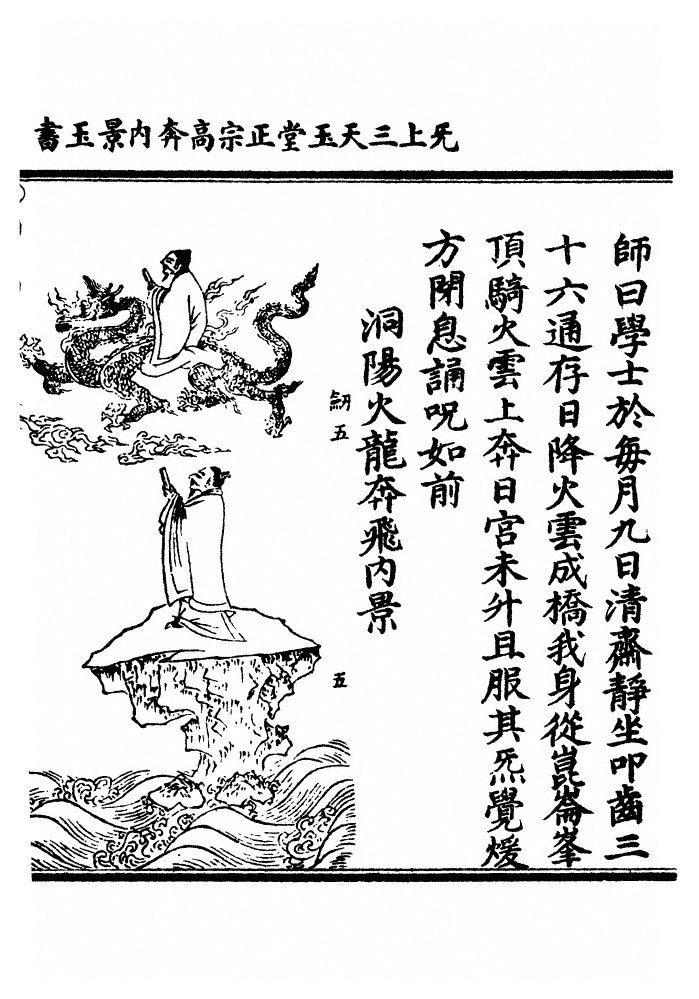 旡上三天玉堂正宗高奔內景玉書
師曰學士於每月九日清齋靜坐叩齒三
十六通存日降火雲成橋我身從崑崙峯
頂騎火雲上奔日宮未升且服其炁覺煖
方閉息誦呪如前
洞陽火龍奔飛內景
五
五